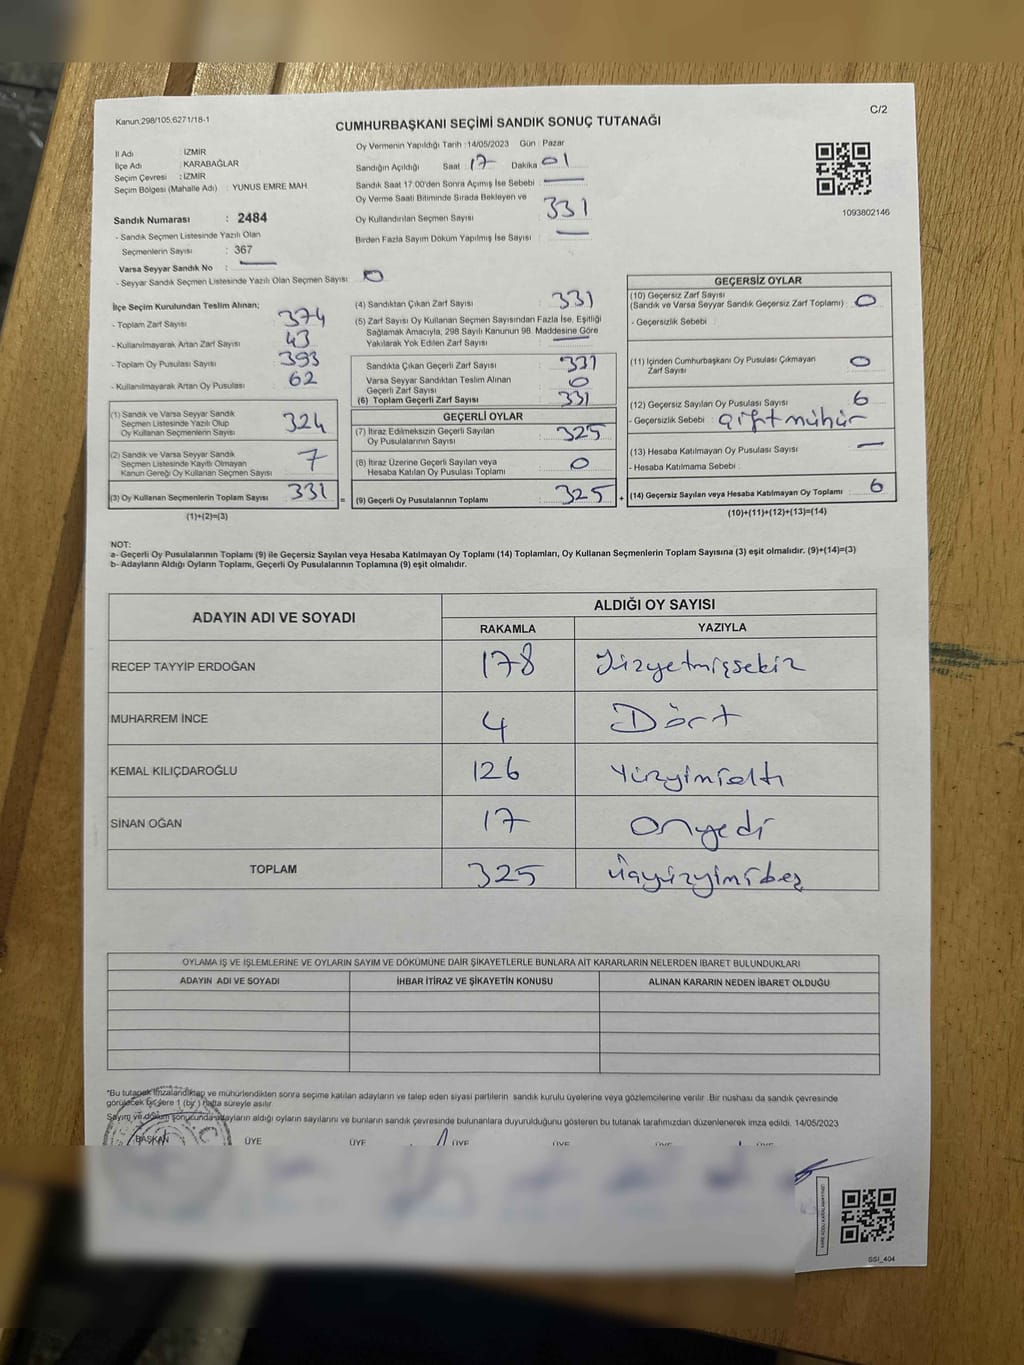 Kanun,298/105,6271/18-1
C/2
CUMHURBAŞKANI SEÇİMİ SANDIK SONUÇ TUTANAĞI
İl Adı : İZMİR
İlçe Adı : KARABAĞLAR
Seçim Çevresi : İZMİR
Seçim Bölgesi (Mahalle Adı) : YUNUS EMRE MAH
Sandık Numarası : 2484
- Sandık Seçmen Listesinde Yazılı Olan
Seçmenlerin Sayısı : 367
Varsa Seyyar Sandık No : —
- Seyyar Sandık Seçmen Listesinde Yazılı Olan Seçmen Sayısı 0
Oy Vermenin Yapıldığı Tarih :14/05/2023 Gün : Pazar
Sandığın Açıldığı Saat : 17 Dakika : 01
Sandık Saat 17:00'den Sonra Açılmış İse Sebebi : —
Oy Verme Saati Bitiminde Sırada Bekleyen ve
Oy Kullandırılan Seçmen Sayısı : 331
Birden Fazla Sayım Döküm Yapılmış İse Sayısı : —
1093802146
İlçe Seçim Kurulundan Teslim Alınan;
- Toplam Zarf Sayısı : 374
- Kullanılmayarak Artan Zarf Sayısı : 43
- Toplam Oy Pusulası Sayısı : 393
- Kullanılmayarak Artan Oy Pusulası : 62
(1) Sandık ve Varsa Seyyar Sandık
Seçmen Listesinde Yazılı Olup
Oy Kullanan Seçmenlerin Sayısı : 324
(2) Sandık ve Varsa Seyyar Sandık
Seçmen Listesinde Kayıtlı Olmayan
Kanun Gereği Oy Kullanan Seçmen Sayısı : 7
(3) Oy Kullanan Seçmenlerin Toplam Sayısı : 331 =
(1)+(2)=(3)
(4) Sandıktan Çıkan Zarf Sayısı : 331
(5) Zarf Sayısı Oy Kullanan Seçmen Sayısından Fazla İse, Eşitliği
Sağlamak Amacıyla, 298 Sayılı Kanunun 98. Maddesine Göre
Yakılarak Yok Edilen Zarf Sayısı : —
Sandıkta Çıkan Geçerli Zarf Sayısı : 331
Varsa Seyyar Sandıktan Teslim Alınan
Geçerli Zarf Sayısı : 0
(6) Toplam Geçerli Zarf Sayısı : 331
GEÇERLİ OYLAR
(7) İtiraz Edilmeksizin Geçerli Sayılan
Oy Pusulalarının Sayısı : 325
(8) İtiraz Üzerine Geçerli Sayılan veya
Hesaba Katılan Oy Pusulası Toplamı : 0
(9) Geçerli Oy Pusulalarının Toplamı : 325 +
GEÇERSİZ OYLAR
(10) Geçersiz Zarf Sayısı
(Sandık ve Varsa Seyyar Sandık Geçersiz Zarf Toplamı) : 0
- Geçersizlik Sebebi :
(11) İçinden Cumhurbaşkanı Oy Pusulası Çıkmayan
Zarf Sayısı : 0
(12) Geçersiz Sayılan Oy Pusulası Sayısı : 6
- Geçersizlik Sebebi : Çift mühür
(13) Hesaba Katılmayan Oy Pusulası Sayısı : —
- Hesaba Katılmama Sebebi :
(14) Geçersiz Sayılan veya Hesaba Katılmayan Oy Toplamı : 6
(10)+(11)+(12)+(13)=(14)
NOT:
a- Geçerli Oy Pusulalarının Toplamı (9) ile Geçersiz Sayılan veya Hesaba Katılmayan Oy Toplamı (14) Toplamları, Oy Kullanan Seçmenlerin Toplam Sayısına (3) eşit olmalıdır. (9)+(14)=(3)
b- Adayların Aldığı Oyların Toplamı, Geçerli Oy Pusulalarının Toplamına (9) eşit olmalıdır.
ADAYIN ADI VE SOYADI ALDIĞI OY SAYISI
RAKAMLA YAZIYLA
RECEP TAYYİP ERDOĞAN 178 Yüzyetmişsekiz
MUHARREM İNCE 4 Dört
KEMAL KILIÇDAROĞLU 126 Yüzyirmialtı
SİNAN OĞAN 17 Onyedi
TOPLAM 325 Üçyüzyirmibeş
OYLAMA İŞ VE İŞLEMLERİNE VE OYLARIN SAYIM VE DÖKÜMÜNE DAİR ŞİKAYETLERLE BUNLARA AİT KARARLARIN NELERDEN İBARET BULUNDUKLARI
ADAYIN ADI VE SOYADI İHBAR İTİRAZ VE ŞİKAYETİN KONUSU ALINAN KARARIN NEDEN İBARET OLDUĞU
*Bu tutanak imzalandıktan ve mühürlendikten sonra seçime katılan adayların ve talep eden siyasi partilerin sandık kurulu üyelerine veya gözlemcilerine verilir. Bir nüshası da sandık çevresinde
görülecek bir yere 1 (bir) hafta süreyle asılır.
Sayım ve döküm sonucunda adayların aldığı oyların sayılarını ve bunların sandık çevresinde bulunanlara duyurulduğunu gösteren bu tutanak tarafımızdan düzenlenerek imza edildi. 14/05/2023
BAŞKAN ÜYE ÜYE ÜYE ÜYE ÜYE
SSI_404